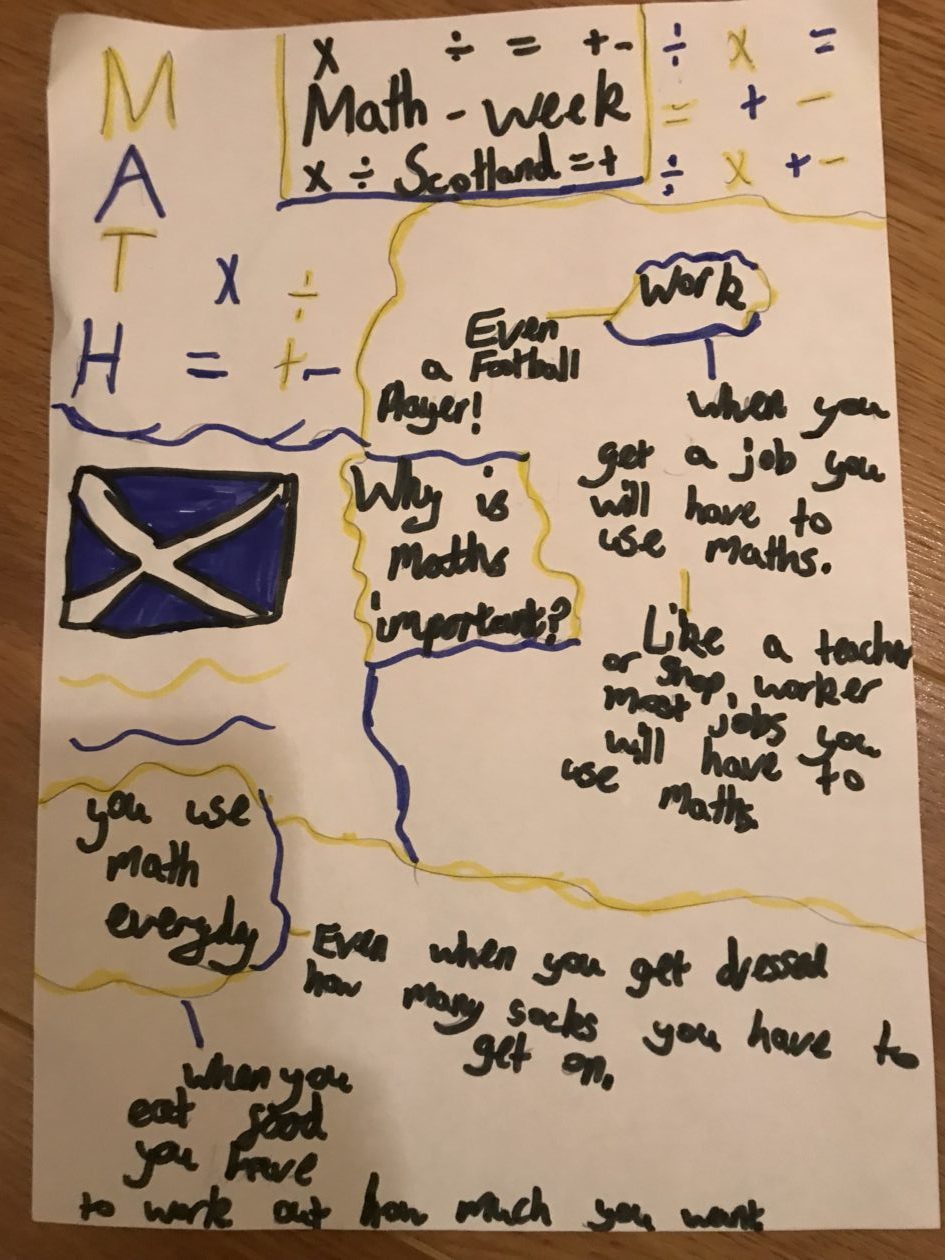 M
A
T
H
x ÷
= + -
x ÷ = + -
Math - week
x ÷ Scotland = +
÷ x =
= + -
÷ x + -
Work
Even
a Football
Player!
When you
get a job you
will have to
use maths.
Like a teacher
or shop, worker
most jobs you
will have to
use maths.
Why is
Maths
important?
you use
math
everydy
Even when you get dressed
how many socks you have to
get on.
When you
eat food
you have
to work out how much you want